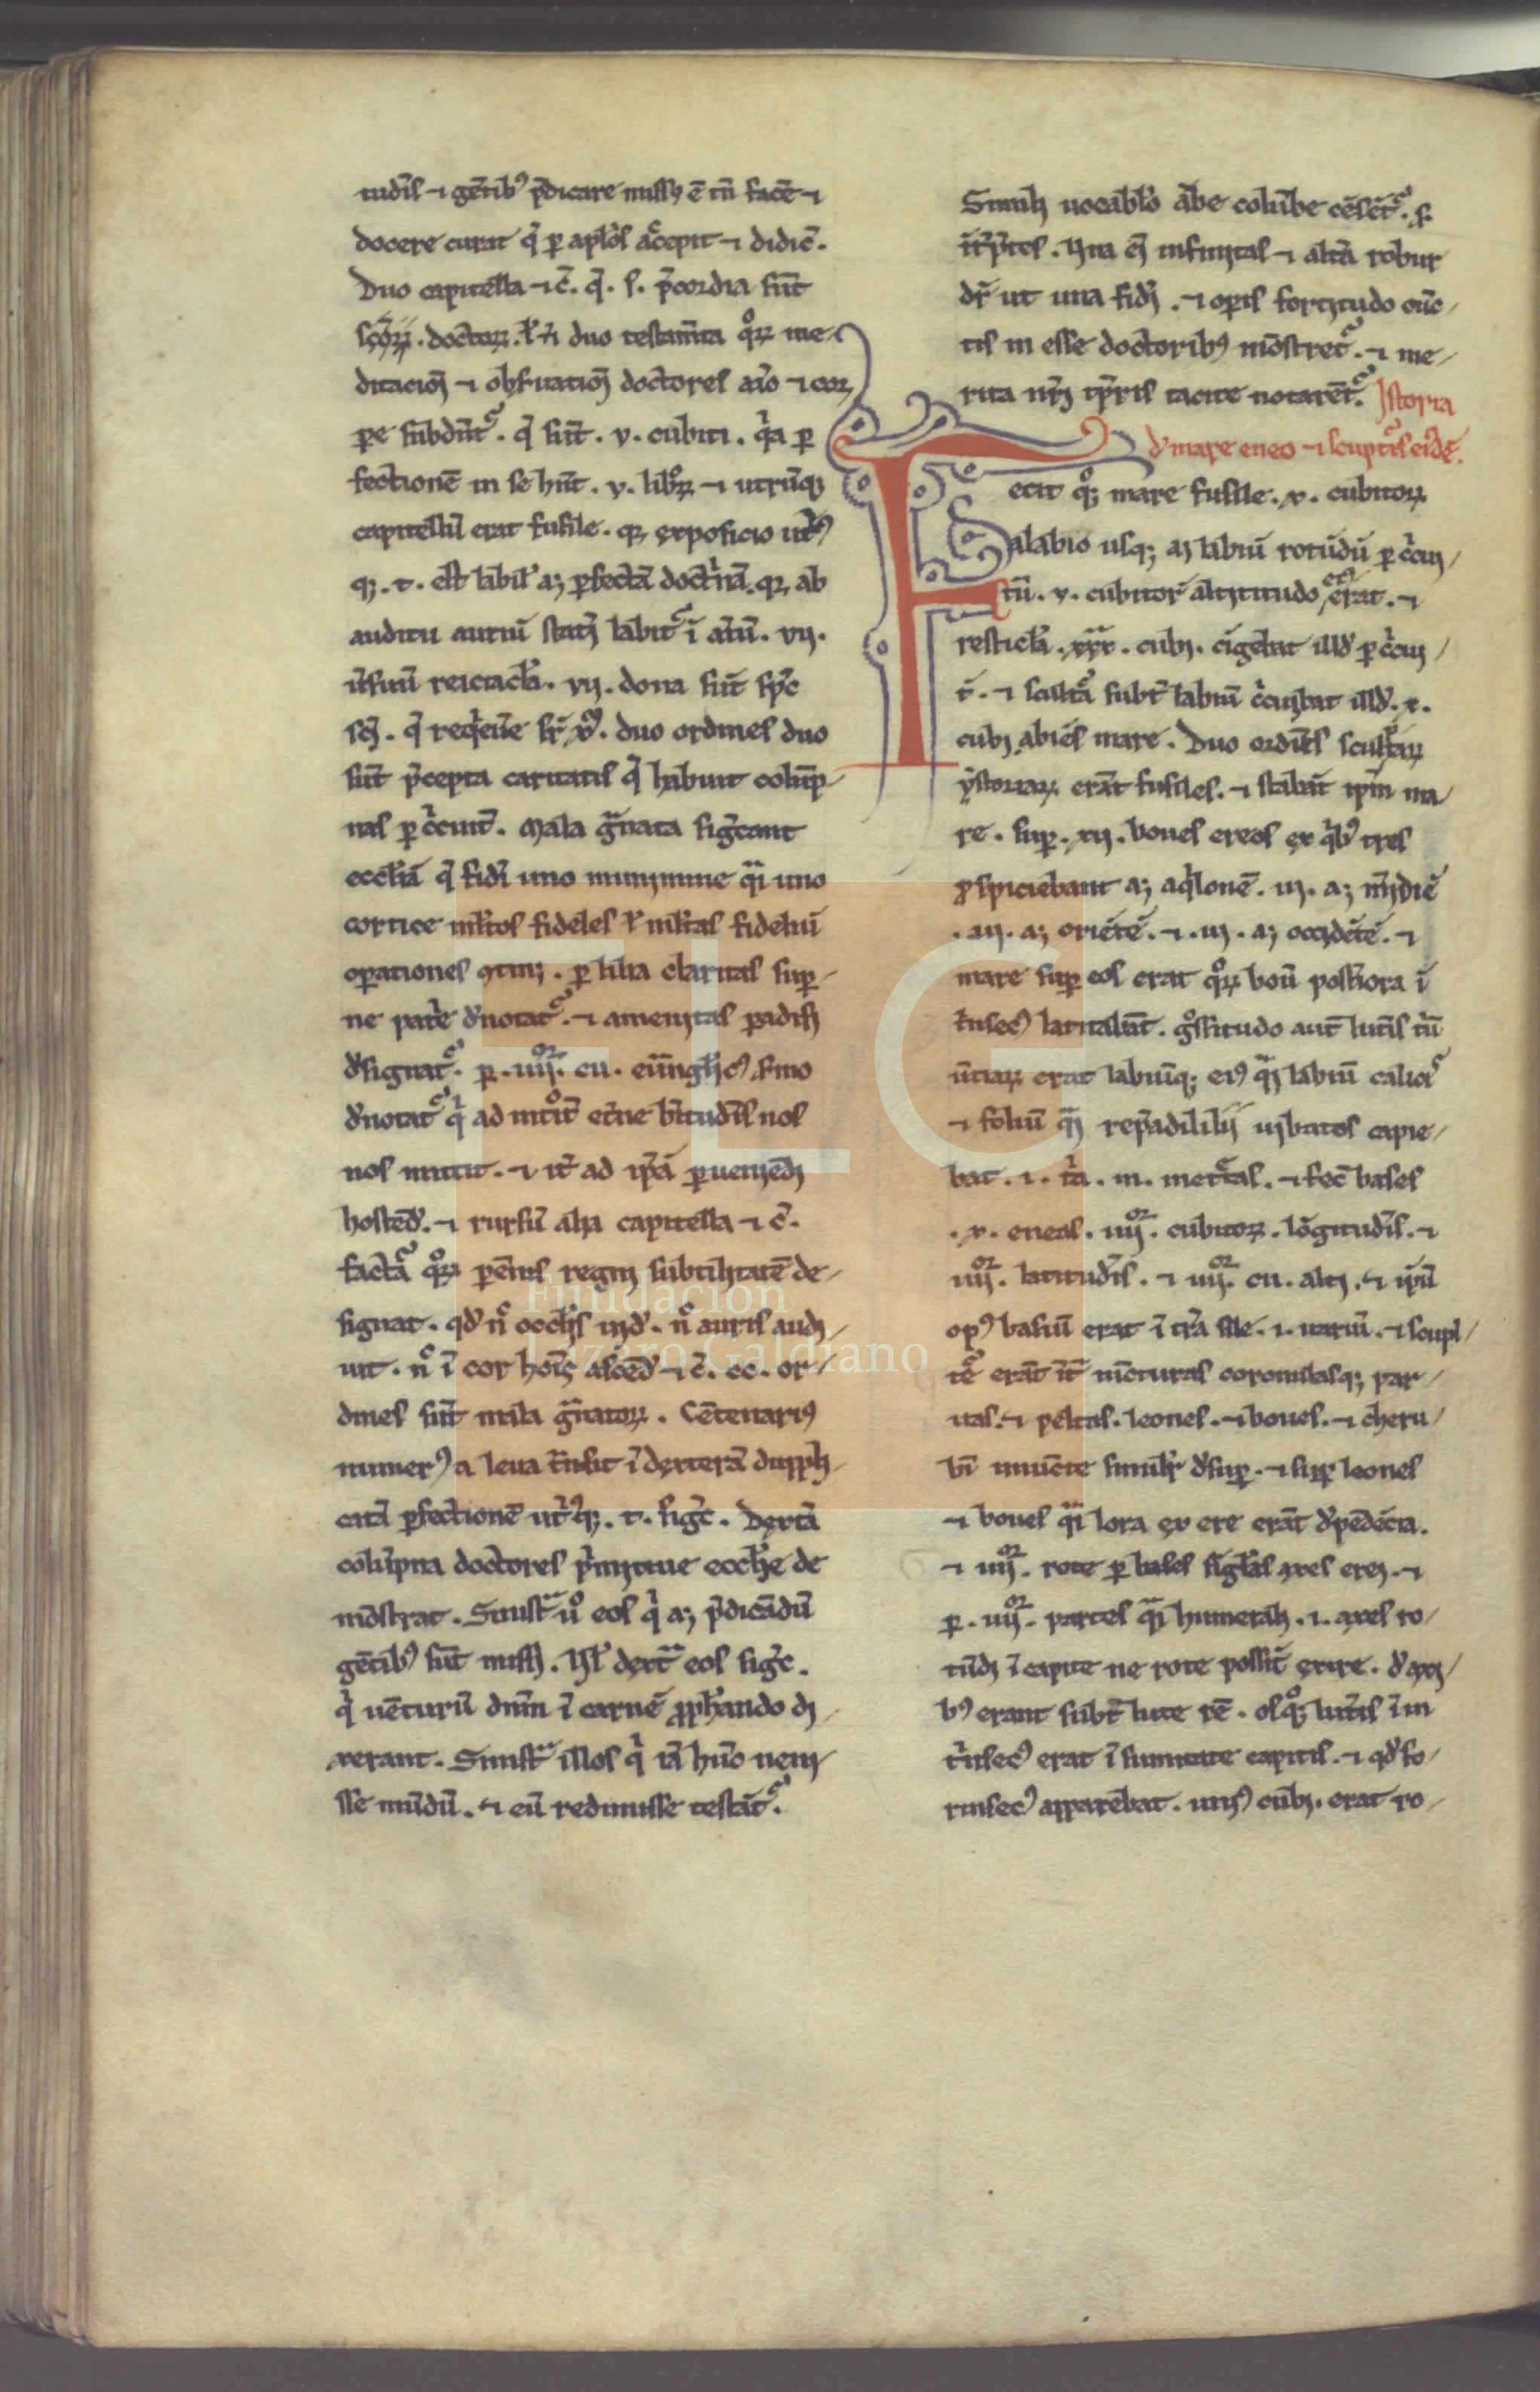 tudīs ⁊ gētibꝰ p̄dicare missꝰ ē tn̄ facē ⁊
docere curat q̄ ꝑ apłos accepit ⁊ didic̄.
Duo capitella ⁊ c̄. q̄. s. p̄cordia sūt
sc̄oꝝ. doctoꝝ. ł duo testam̄ta qͦꝝ me
ditacioī ⁊ obseruatioī doctores aīo ⁊ cor
pe subdūt᷑. q̄ sūt. v. cubiti. qͥa ꝑ
fectionē in se hn̄t. v. libꝝ ⁊ utrūqꝫ
capitellū erat fusile. qꝫ expositio utͥꝰ
qꝫ. t. est labił aꝫ ꝑfectā doctͥnā. qꝫ ab
auditu auriū statī labit᷑ ī aīū. vii.
ūsuū reticlā. vii. dona sūt sp̄c
sc̄i. duo ordines duo
sūt p̄cepta caritatis q̄ habuit colūp
nas ꝑ cͥcuit. Mala gͣnata sigͥcant
eccłiā q̄ fidei uno munimine qͣi uno
cortice młtos fideles ł młtas fideliū
oꝑationes ꝯtinꝫ. ꝑ lilia claritas suꝑ
ne patͥe dͤnotat᷑. ⁊ amenitas ꝑadisi
dͤsignat᷑. ꝑ. iiiiᵒʳ. cu. euāngłicꝰ s̄mo
dͤnotat᷑ qͥ ad int̄oit et̄ne b̄titudīs nos
nos mittit. ⁊ it̄ ad ip̄ā ꝑueniēdi
hostēd̄. ⁊ rursū alia capitella ⁊ c̄.
factā qͦꝝ ꝑēnis regni subtilitatē de
signat. qd̄ nͦ occłis uid̄. nͦ auris audi
uit. nͦ ī cor hoīs ascēd̄ ⁊ c̄. cc. or
dines sūt mala gͣnatoꝝ. Cētenariꝰ
numerꝰ a leua tͣnsit ī dexterā duppli
catā ꝑfectionē utͥꝰqꝫ. t. sigͥc. Dextͣ
colūpna doctores pͥmitiue eccłie de
mōstrat. Sinistͣ ūͦ eos qͥ aꝫ p̄dicādū
gētibꝰ sūt missi. Uł dextͣ eos sigͥc.
qͥ uēturū dn̄m ī carnē ꝓphādo di
xerant. Sinistͣ illos qͥ iā hūc ueni
sse mūdū. ⁊ eū redimisse testāt᷑.
Simili uocabło colūbe cēsēt᷑. s.
īt̄p̄tes. Una ei infinitas ⁊ altā robur
dr̄ ut una fidi. ⁊ oꝑis fortitudo cūc
tis in esse doctoribꝰ mōstret᷑. ⁊ me
rita nr̄i tꝑis tacite notarēt᷑. Istoria
dͤ mare eneo ⁊ scuptͥs eiꝰdē.
Fecit qͦꝫ mare fusile. x. cubitoꝝ
alabio usqꝫ aꝫ labiū rotūdū ꝑ cͥcui
tū. v. cubitoꝝ altitudo eiꝰ erat. ⁊
resticła. xxx. cubi. cīgebat illd̄ ꝑ cͥcui
t̄. ⁊ scultͣ subt̄ labiū cͥcuibat illd̄. x.
cubi abiēs mare. Duo ordines scultaꝝ
ystoriaꝝ erāt fusiles. ⁊ stabāt ip̄m ma
re. suꝑ. xii. boues ereos ex qͥbꝰ tres
ꝓspiciebant aꝫ aqͥlonē. iii. aꝫ m̄idiē
. iii. aꝫ oriētē. ⁊. iii. aꝫ occidētē. ⁊
mare suꝑ eos erat qͦꝝ boū post̄iora ī
tͥnsecꝰ latitabāt. gͦssitudo aūt lutīs tͥū
ūciaꝝ erat labiūqꝫ eiꝰ qͣi labiū calicͥ
⁊ foliū qͣi rep̄adi lilii ii batos capie
bat. ⁊. tͥa. m. metͣtas. ⁊ fec̄ bases
. x. eneas. iiiiᵒʳ. cubitoꝝ. lōgitudīs. ⁊
iiiiᵒʳ. latitudīs. ⁊ iiiiᵒʳ. cu. alti. ⁊ ip̄ū
opꝰ basiū erat ī tͣa sile. ⁊ scupt
tē erāt īt̄ iūcturas coronulasqꝫ par
uas. ⁊ peltas. leones. ⁊ boues. ⁊ cheru
bī iniūcte similr̄ dͤsuꝑ. ⁊ suꝑ leones
⁊ boues qͣi lora ex ere erāt dͤpēdēcia.
⁊ iiiiᵒʳ. rote ꝑ bases sīgłas axes erei. ⁊
ꝑ. iiiiᵒʳ. partes qͣi humerali. ⁊. axes ro
tūdi ī capite ne rote possīt exire. dͤ axi
bꝰ erant subt̄ lute rē. osqͦꝫ lutīs īin
tͥnsecꝰ erat ī sumitate capitis. ⁊ qd̄ fo
rinsecꝰ apparebat. uniꝰ cubi. erat ro